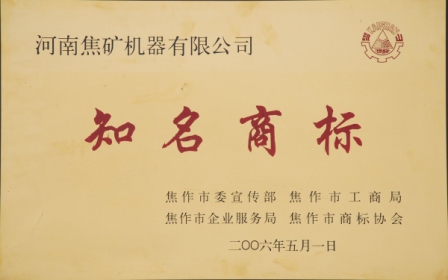 河南焦矿机器有限公司
知名商标
焦作市委宣传部 焦作市工商局
焦作市企业服务局 焦作市商标协会
二〇〇六年五月一日